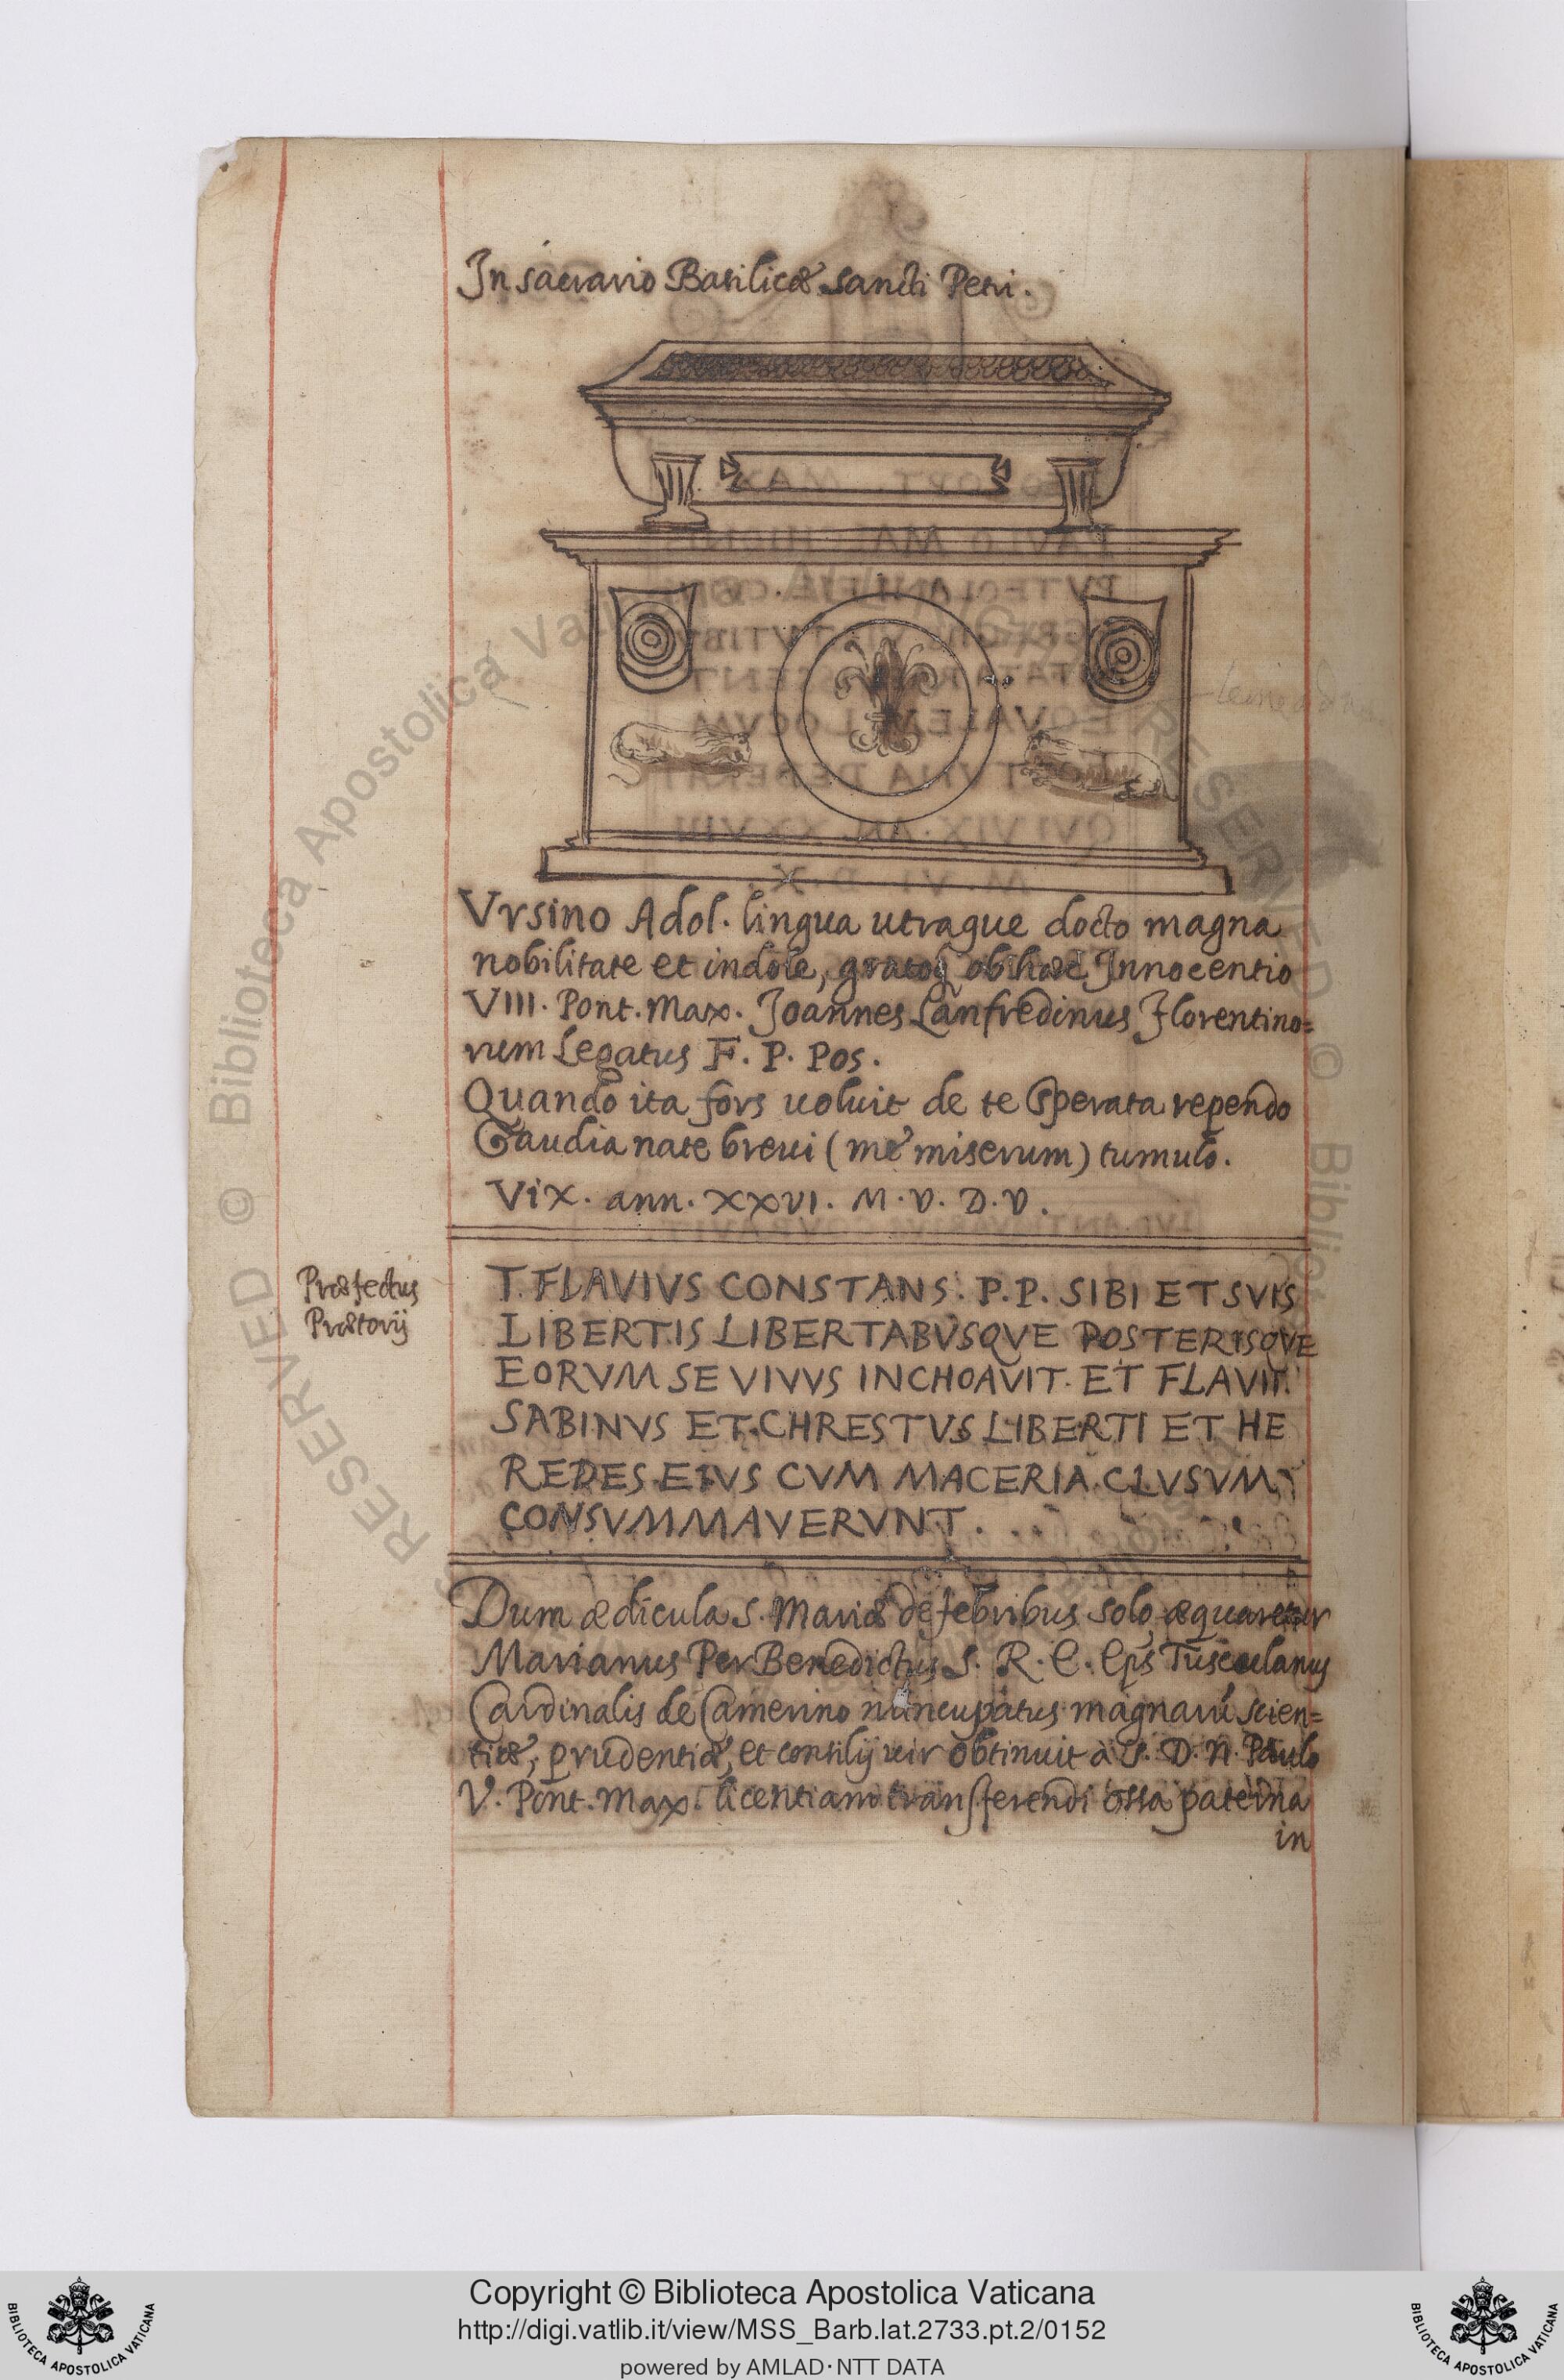 In sacrario Basilicæ sancti Petri.
Vrsino Adol. lingua utraque docto magna
nobilitate et indole, gratoq ob hæc Innocentio
VIII. Pont. Max. Joannes Lanfredinus Florentino=
rum Legatus F. P. Pos.
Quando ita fors uoluit de te sperata rependo
Gaudia nate breui (me miserum) tumulo.
Vix. ann. XXVI. M. V. D. V.
Præfectus
Prætorij
T. FLAVIVS CONSTANS. P. P. SIBI ET SVIS
LIBERTIS LIBERTABVSQVE POSTERISQVE
EORVM SE VIVVS INCHOAVIT. ET FLAVII.
SABINVS ET CHRESTVS LIBERTI ET HE
REDES EIVS CVM MACERIA CLVSVM
CONSVMMAVERVNT.
Dum ædicula S. Mariæ de febribus solo æquaretur
Marianus PerBenedictus S. R. E. Eps Tusculanus
Cardinalis de Camerino nuncupatus magnarū scien=
tiæ, prudentiæ, et consilij uir obtinuit à S. D. N. Paulo
V. Pont. Max. licentiam transferendi ossa paterna
in
RESERVED © Biblioteca Apostolica Vaticana
RESERVED © Biblioteca Apostolica
Copyright © Biblioteca Apostolica Vaticana
http://digi.vatlib.it/view/MSS_Barb.lat.2733.pt.2/0152
powered by AMLAD·NTT DATA
BIBLIOTECA APOSTOLICA VATICANA
BIBLIOTECA APOSTOLICA VATICANA